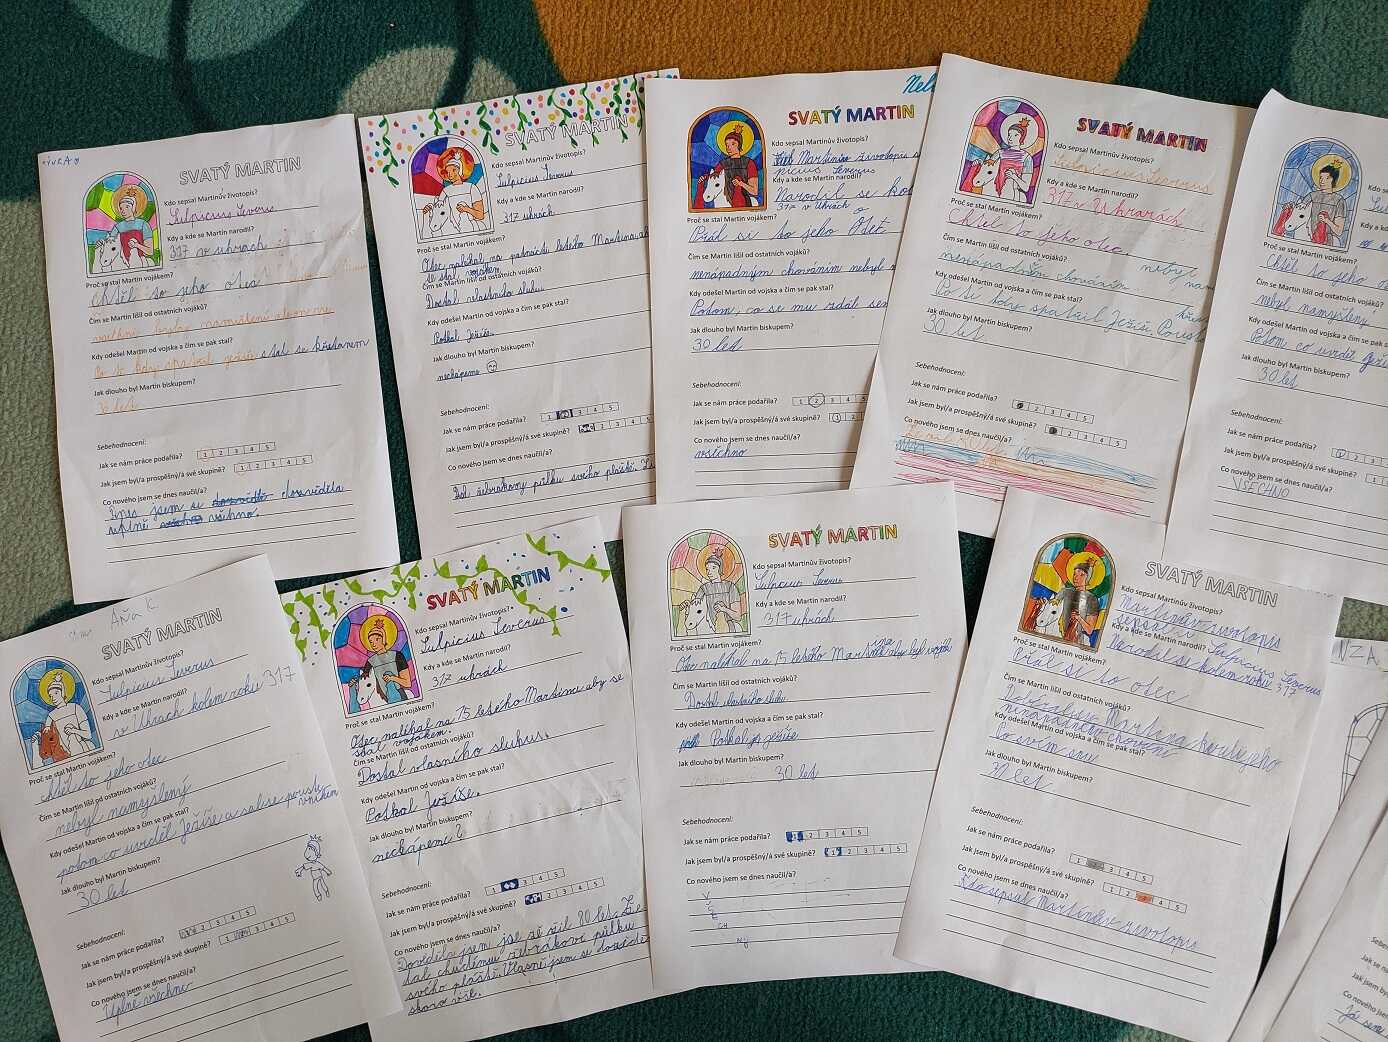 SVATÝ MARTIN
Kdo sepsal Martinův životopis?
Sulpicius Severus
Kdy a kde se Martin narodil?
317 v uhrách
Proč se stal Martin vojákem?
Chtěl to jeho otec
Čím se Martin lišil od ostatních vojáků?
Kdy odešel Martin od vojska a čím se pak stal?
stal se křesťanem
Jak dlouho byl Martin biskupem?
30 let
Sebehodnocení:
Jak se nám práce podařila? 1 2 3 4 5
Jak jsem byl/a prospěšný/á své skupině? 1 2 3 4 5
Co nového jsem se dnes naučil/a?
Dnes jsem se dozvěděla
úplně všchno.
SVATÝ MARTIN
Kdo sepsal Martinův životopis?
Sulpicius Severus
Kdy a kde se Martin narodil?
317 uhrách
Proč se stal Martin vojákem?
Otec naléhal na patnácti letého Martina ab
se stal vojákem.
Čím se Martin lišil od ostatních vojáků?
Dostal vlastního sluhu.
Kdy odešel Martin od vojska a čím se pak stal?
Potkal Ježíše.
Jak dlouho byl Martin biskupem?
nechápeme
Sebehodnocení:
Jak se nám práce podařila? 1 3 4 5
Jak jsem byl/a prospěšný/á své skupině? 2 3 4 5
Co nového jsem se dnes naučil/a?
Dal žebrákovy půlku svého pláště.
Nel
SVATÝ MARTIN
Kdo sepsal Martinův životopis?
Martinův životopis s
picius Severus
Kdy a kde se Martin narodil?
Narodil se ko
317 v Uhrách
Proč se stal Martin vojákem?
Přál si to jeho Otet
Čím se Martin lišil od ostatních vojáků?
nenápadným chováním nebyl
Kdy odešel Martin od vojska a čím se pak stal?
Potom, co se mu zdál sen
Jak dlouho byl Martin biskupem?
30 let
Sebehodnocení:
Jak se nám práce podařila? 1 2 3
Jak jsem byl/a prospěšný/á své skupině? 1 2
Co nového jsem se dnes naučil/a?
všechno
SVATÝ MARTIN
Kdo sepsal Martinův životopis?
Sulpicius Severus
Kdy a kde se Martin narodil?
317 v Uhrarách
Proč se stal Martin vojákem?
Chtěl to jeho otec.
Čím se Martin lišil od ostatních vojáků?
nebyl nam
nenápadním chováním
Kdy odešel Martin od vojska a čím se pak stal?
Po té kdy spatřil Ježíš
Jak dlouho byl Martin biskupem?
30 let
Sebehodnocení:
Jak se nám práce podařila? 2 3 4 5
Jak jsem byl/a prospěšný/á své skupině? 2 3 4 5
Co nového jsem se dnes naučil/a?
Kdo
Kdy a
Proč se stal Martin vojákem?
Chtěl to jeho
Čím se Martin lišil od ostatních vojáků?
nebyl namyšlený
Kdy odešel Martin od vojska a čím se pak
Potom co uviděl
Jak dlouho byl Martin biskupem?
30 let
Sebehodnocení:
Jak se nám práce podařila? 1
Jak jsem byl/a prospěšný/á své skupině? 1
Co nového jsem se dnes naučil/a?
VŠECHNO
Aňa K.
SVATÝ MARTIN
Kdo sepsal Martinův životopis?
Sulpicius Severus
Kdy a kde se Martin narodil?
v Uhrach kolem roku 317
Proč se stal Martin vojákem?
chtěl to jeho otec
Čím se Martin lišil od ostatních vojáků?
nebyl namyšlený
Kdy odešel Martin od vojska a čím se pak stal?
potom co uviděl Ježíše a stal se poustevníkem
Jak dlouho byl Martin biskupem?
30 let
Sebehodnocení:
Jak se nám práce podařila? 1 2 3 4 5
Jak jsem byl/a prospěšný/á své skupině? 1 2 3 4 5
Co nového jsem se dnes naučil/a?
Uplně všechno
SVATÝ MARTIN
Kdo sepsal Martinův životopis?
Sulpicius Severus
Kdy a kde se Martin narodil?
317 uhrách
Proč se stal Martin vojákem?
Otec naléhal na 15 letého Martina aby se
stal vojákem.
Čím se Martin lišil od ostatních vojáků?
Dostal vlasního sluhus.
Kdy odešel Martin od vojska a čím se pak stal?
Potkal Ježíše.
Jak dlouho byl Martin biskupem?
nechápeme?
Sebehodnocení:
Jak se nám práce podařila? 1 3 4 5
Jak jsem byl/a prospěšný/á své skupině? 2 3 4 5
Co nového jsem se dnes naučil/a?
Dověděla jsem jse že žil 80 let. Že
dal chudému žebrákovi půlku
svého pláště. Vlasně jsem se dověděl
skoro vše.
SVATÝ MARTIN
Kdo sepsal Martinův životopis?
Sulpicius Severus
Kdy a kde se Martin narodil?
317 uhrách
Proč se stal Martin vojákem?
Otec naléhal na 15 letého Martina aby byl voják
Čím se Martin lišil od ostatních vojáků?
Dostal vlastního sluhu
Kdy odešel Martin od vojska a čím se pak stal?
Potkal ježíše
Jak dlouho byl Martin biskupem?
30 let
Sebehodnocení:
Jak se nám práce podařila? 1 2 3 4 5
Jak jsem byl/a prospěšný/á své skupině? 1 2 3 4 5
Co nového jsem se dnes naučil/a?
SVATÝ MARTIN
Kdo sepsal Martinův životopis?
Martinův zivotopis
sepsal Sulpicius Severus
Kdy a kde se Martin narodil?
Narodil se kolem roku 317
Proč se stal Martin vojákem?
Přál si to otec
Čím se Martin lišil od ostatních vojáků?
Martina kvuly jeho
nenápadného chování
Kdy odešel Martin od vojska a čím se pak stal?
Po svém snu
Jak dlouho byl Martin biskupem?
let
Sebehodnocení:
Jak se nám práce podařila? 1 2 3 4 5
Jak jsem byl/a prospěšný/á své skupině? 1 2 3 4 5
Co nového jsem se dnes naučil/a?
Kdo sepsal Martinův zivotopis
NZA
Proč se
Čím se
Kdy ode
Jak dlou
Sebehod
Jak se ná
Jak jsem
Co nové
Já sem